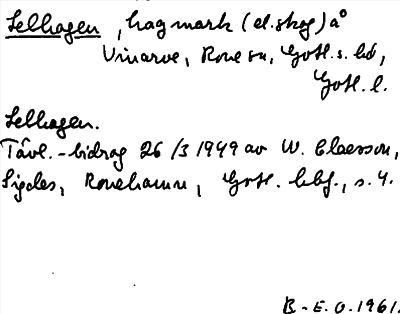 Selhagen, hagmark (el. skog) å
Vinarve, Rone sn, Gotl. s. hd,
Gotl. l.
Selhagen.
Tävl.-bidrag 26/3 1949 av W. Claesson,
Sigdes, Ronehamn, Gotl. hbf., s. 4.
B-E.O. 1961.